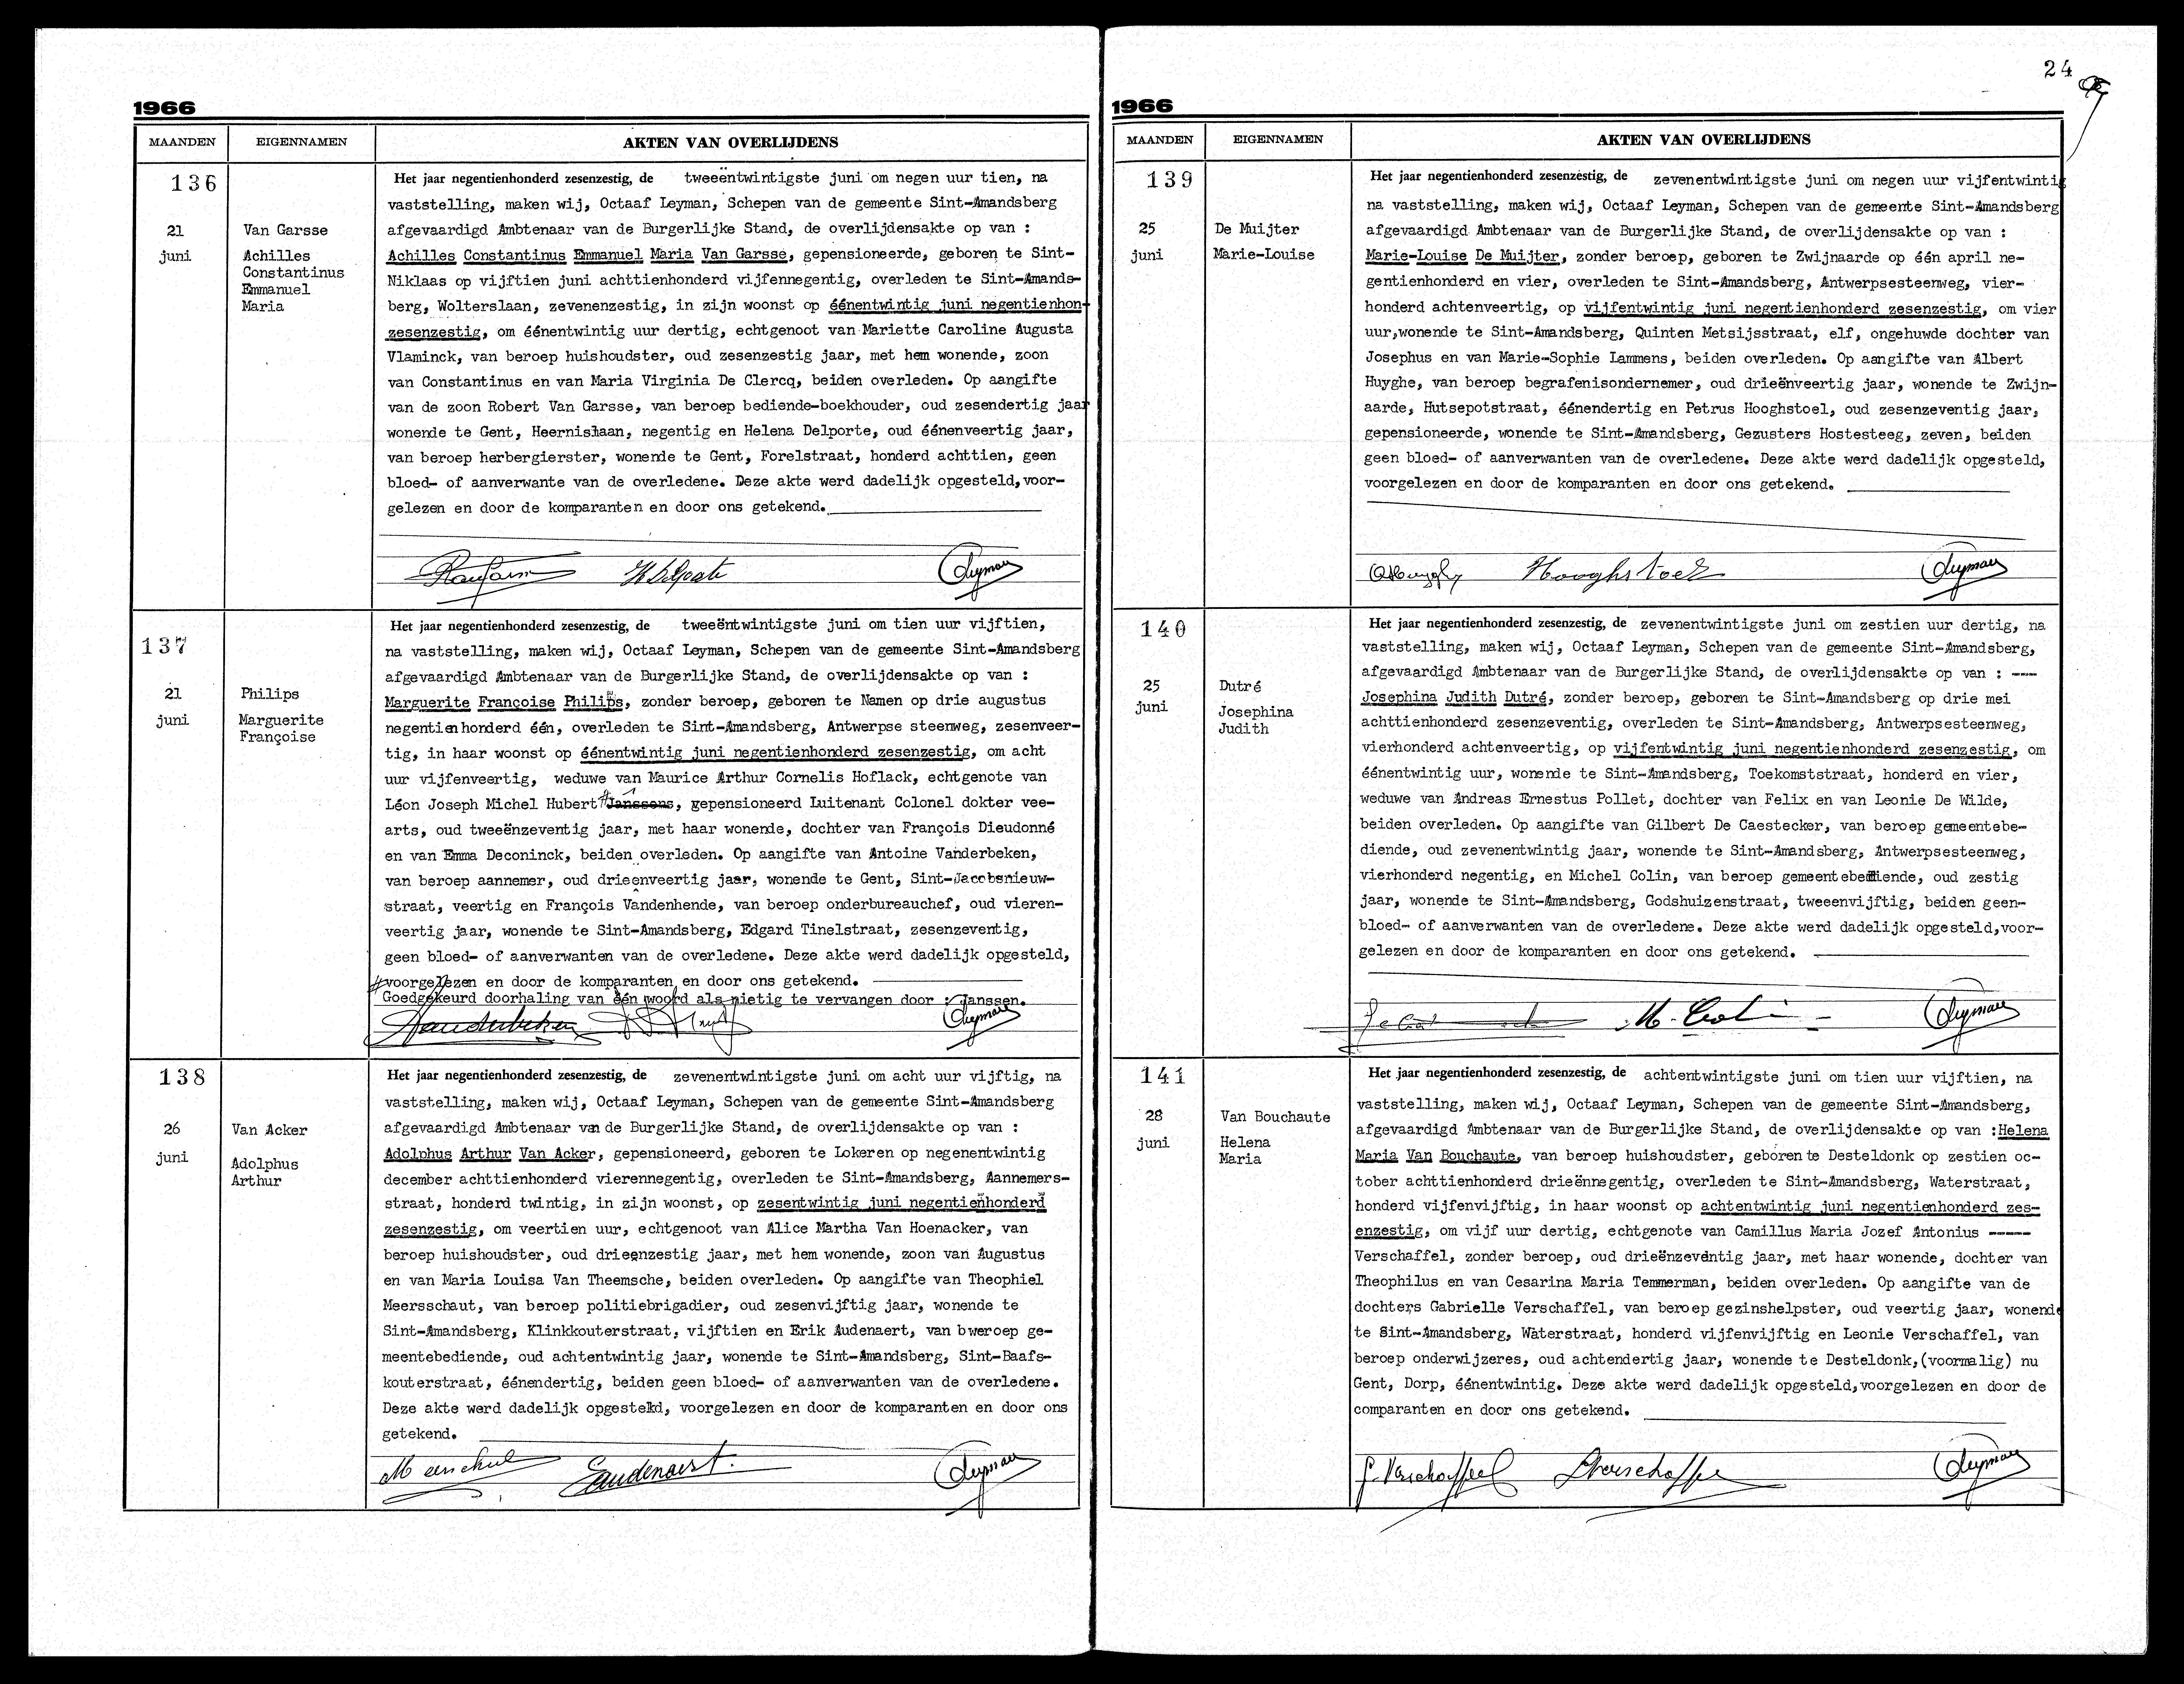 24
1966
MAANDEN
EIGENNAMEN
AKTEN VAN OVERLIJDENS
136
21
juni
Van Garsse
Achilles
Constantinus
Emmanuel
Maria
Het jaar negentienhonderd zesenzestig, de tweeëntwintigste juni om negen uur tien, na
vaststelling, maken wij, Octaaf Leyman, Schepen van de gemeente Sint-Amandsberg
afgevaardigd Ambtenaar van de Burgerlijke Stand, de overlijdensakte op van :
Achilles Constantinus Emmanuel Maria Van Garsse, gepensioneerde, geboren te Sint-
Niklaas op vijftien juni achttienhonderd vijfennegentig, overleden te Sint-Amands-
berg, Wolterslaan, zevenenzestig, in zijn woonst op éénentwintig juni negentienhon-
zesenzestig, om éénentwintig uur dertig, echtgenoot van Mariette Caroline Augusta
Vlaminck, van beroep huishoudster, oud zesenzestig jaar, met hem wonende, zoon
van Constantinus en van Maria Virginia De Clercq, beiden overleden. Op aangifte
van de zoon Robert Van Garsse, van beroep bediende-boekhouder, oud zesendertig jaar
wonende te Gent, Heernislaan, negentig en Helena Delporte, oud éénenveertig jaar,
van beroep herbergierster, wonende te Gent, Forelstraat, honderd achttien, geen
bloed- of aanverwante van de overledene. Deze akte werd dadelijk opgesteld,voor-
gelezen en door de komparanten en door ons getekend.
Leyman
137
21
juni
Philips
Marguerite
Françoise
Het jaar negentienhonderd zesenzestig, de tweeëntwintigste juni om tien uur vijftien,
na vaststelling, maken wij, Octaaf Leyman, Schepen van de gemeente Sint-Amandsberg
afgevaardigd Ambtenaar van de Burgerlijke Stand, de overlijdensakte op van :
Marguerite Françoise Philips, zonder beroep, geboren te Namen op drie augustus
negentienhonderd één, overleden te Sint-Amandsberg, Antwerpse steenweg, zesenveer-
tig, in haar woonst op éénentwintig juni negentienhonderd zesenzestig, om acht
uur vijfenveertig, weduwe van Maurice Arthur Cornelis Hoflack, echtgenote van
Léon Joseph Michel Hubert # Janssens, gepensioneerd Luitenant Colonel dokter vee-
arts, oud tweeënzeventig jaar, met haar wonende, dochter van François Dieudonné
en van Emma Deconinck, beiden overleden. Op aangifte van Antoine Vanderbeken,
van beroep aannemer, oud drieenveertig jaar, wonende te Gent, Sint-Jacobsnieuw-
straat, veertig en François Vandenhende, van beroep onderbureauchef, oud vieren-
veertig jaar, wonende te Sint-Amandsberg, Edgard Tinelstraat, zesenzeventig,
geen bloed- of aanverwanten van de overledene. Deze akte werd dadelijk opgesteld,
voorgelezen en door de komparanten en door ons getekend.
# Goedgekeurd doorhaling van één woord als nietig te vervangen door : Janssen.
Vanderbeken Leyman
138
26
juni
Van Acker
Adolphus
Arthur
Het jaar negentienhonderd zesenzestig, de zevenentwintigste juni om acht uur vijftig, na
vaststelling, maken wij, Octaaf Leyman, Schepen van de gemeente Sint-Amandsberg
afgevaardigd Ambtenaar van de Burgerlijke Stand, de overlijdensakte op van :
Adolphus Arthur Van Acker, gepensioneerd, geboren te Lokeren op negenentwintig
december achttienhonderd vierennegentig, overleden te Sint-Amandsberg, Aannemers-
straat, honderd twintig, in zijn woonst, op zesentwintig juni negentienhonderd
zesenzestig, om veertien uur, echtgenoot van Alice Martha Van Hoenacker, van
beroep huishoudster, oud drieenzestig jaar, met hem wonende, zoon van Augustus
en van Maria Louisa Van Theemsche, beiden overleden. Op aangifte van Theophiel
Meersschaut, van beroep politiebrigadier, oud zesenvijftig jaar, wonende te
Sint-Amandsberg, Klinkkouterstraat, vijftien en Erik Audenaert, van bweroep ge-
meentebediende, oud achtentwintig jaar, wonende te Sint-Amandsberg, Sint-Baafs-
kouterstraat, éénendertig, beiden geen bloed- of aanverwanten van de overledene.
Deze akte werd dadelijk opgesteld, voorgelezen en door de komparanten en door ons
getekend.
EAudenaert. Leyman
1966
MAANDEN
EIGENNAMEN
AKTEN VAN OVERLIJDENS
139
25
juni
De Muijter
Marie-Louise
Het jaar negentienhonderd zesenzestig, de zevenentwintigste juni om negen uur vijfentwintig
na vaststelling, maken wij, Octaaf Leyman, Schepen van de gemeente Sint-Amandsberg
afgevaardigd Ambtenaar van de Burgerlijke Stand, de overlijdensakte op van :
Marie-Louise De Muijter, zonder beroep, geboren te Zwijnaarde op één april ne-
gentienhonderd en vier, overleden te Sint-Amandsberg, Antwerpsesteenweg, vier-
honderd achtenveertig, op vijfentwintig juni negentienhonderd zesenzestig, om vier
uur,wonende te Sint-Amandsberg, Quinten Metsijsstraat, elf, ongehuwde dochter van
Josephus en van Marie-Sophie Lammens, beiden overleden. Op aangifte van Albert
Huyghe, van beroep begrafenisondernemer, oud drieënveertig jaar, wonende te Zwijn-
aarde, Hutsepotstraat, éénendertig en Petrus Hooghstoel, oud zesenzeventig jaar,
gepensioneerde, wonende te Sint-Amandsberg, Gezusters Hostesteeg, zeven, beiden
geen bloed- of aanverwanten van de overledene. Deze akte werd dadelijk opgesteld,
voorgelezen en door de komparanten en door ons getekend.
Hooghstoel Leyman
140
25
juni
Dutré
Josephina
Judith
Het jaar negentienhonderd zesenzestig, de zevenentwintigste juni om zestien uur dertig, na
vaststelling, maken wij, Octaaf Leyman, Schepen van de gemeente Sint-Amandsberg,
afgevaardigd Ambtenaar van de Burgerlijke Stand, de overlijdensakte op van : ---
Josephina Judith Dutré, zonder beroep, geboren te Sint-Amandsberg op drie mei
achttienhonderd zesenzeventig, overleden te Sint-Amandsberg, Antwerpsesteenweg,
vierhonderd achtenveertig, op vijfentwintig juni negentienhonderd zesenzestig, om
éénentwintig uur, wonende te Sint-Amandsberg, Toekomststraat, honderd en vier,
weduwe van Andreas Ernestus Pollet, dochter van Felix en van Leonie De Wilde,
beiden overleden. Op aangifte van Gilbert De Caestecker, van beroep gemeentebe-
diende, oud zevenentwintig jaar, wonende te Sint-Amandsberg, Antwerpsesteenweg,
vierhonderd negentig, en Michel Colin, van beroep gemeentebediende, oud zestig
jaar, wonende te Sint-Amandsberg, Godshuizenstraat, tweeenvijftig, beiden geen-
bloed- of aanverwanten van de overledene. Deze akte werd dadelijk opgesteld,voor-
gelezen en door de komparanten en door ons getekend.
M. Colin Leyman
141
28
juni
Van Bouchaute
Helena
Maria
Het jaar negentienhonderd zesenzestig, de achtentwintigste juni om tien uur vijftien, na
vaststelling, maken wij, Octaaf Leyman, Schepen van de gemeente Sint-Amandsberg,
afgevaardigd Ambtenaar van de Burgerlijke Stand, de overlijdensakte op van :Helena
Maria Van Bouchaute, van beroep huishoudster, geboren te Desteldonk op zestien oc-
tober achttienhonderd drieënnegentig, overleden te Sint-Amandsberg, Waterstraat,
honderd vijfenvijftig, in haar woonst op achtentwintig juni negentienhonderd zes-
enzestig, om vijf uur dertig, echtgenote van Camillus Maria Jozef Antonius -----
Verschaffel, zonder beroep, oud drieënzeventig jaar, met haar wonende, dochter van
Theophilus en van Cesarina Maria Temmerman, beiden overleden. Op aangifte van de
dochters Gabrielle Verschaffel, van beroep gezinshelpster, oud veertig jaar, wonende
te Sint-Amandsberg, Waterstraat, honderd vijfenvijftig en Leonie Verschaffel, van
beroep onderwijzeres, oud achtendertig jaar, wonende te Desteldonk,(voormalig) nu
Gent, Dorp, éénentwintig. Deze akte werd dadelijk opgesteld,voorgelezen en door de
comparanten en door ons getekend.
G. Verschaffel LVerschaffel Leyman